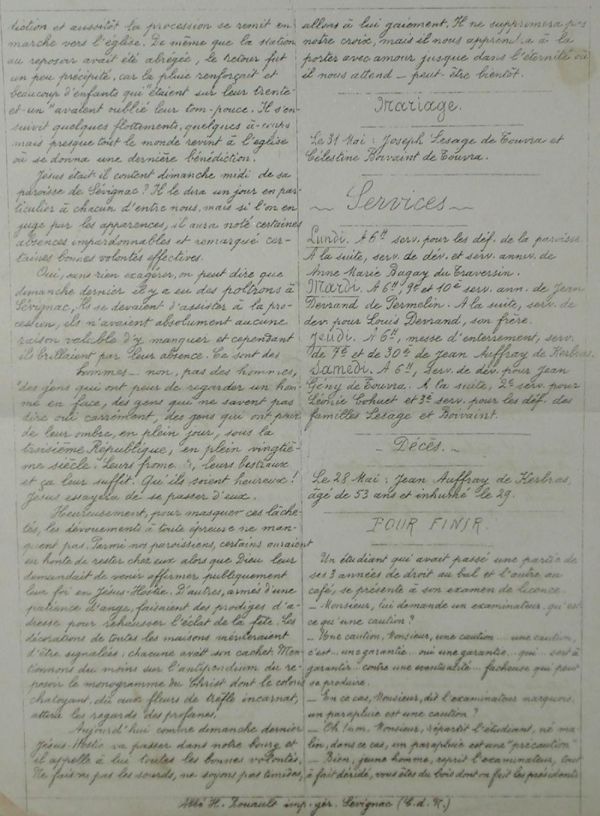 diction et aussitôt la procession se remit en
marche vers l'église. De même que la station
au reposoir avait été abrégée, le retour fut
un peu précipité, car la pluie renforçait et
beaucoup d'enfants qui "étaient sur leur trente-
et-un" avaient oublié leur tom-pouce. Il s'en-
suivit quelques flottements, quelques à-coups
mais presque tout le monde revint à l'église
où se donna une dernière bénédiction.
Jésus était il content dimanche midi de sa
paroisse de Sévignac? Il le dira un jour en par-
ticulier à chacun d'entre nous, mais si l'on en
juge par les apparences, il aura noté certaines
absences impardonnables et remarqué cer-
taines bonnes volontés effectives.
Oui, sans rien exagérer, on peut dire que
dimanche dernier il y a eu des poltrons à
Sévignac. Ils se devaient d'assister à la pro-
cession, ils n'avaient absolument aucune
raison valable d'y manquer et cependant
ils brillaient par leur absence. Ce sont des
hommes - non, pas des hommes,
des gens qui ont peur de regarder un hom-
me en face, des gens qui ne savent pas
dire oui carrément, des gens qui ont peur
de leur ombre, en plein jour, sous la
troisième République, en plein vingtiè-
me siècle. Leurs , leurs bestiaux
et ça leur suffit. Qu'ils soient heureux!
Jésus essayera de se passer d'eux.
Heureusement, pour masquer ces lâche-
tés, les dévouements à toute épreuve ne man-
quent pas. Parmi nos paroissiens, certains auraient
eu honte de rester chez eux alors que Dieu leur
demandait de venir affirmer publiquement
leur foi en Jésus-Hostie. D'autres, armés d'une
patience d'ange, faisaient des prodiges d'a-
dresse pour rehausser l'éclat de la fête. Les
décorations de toutes les maisons mériteraient
d'être signalées, chacune avait son cachet. Men-
tionnons du moins sur l'antipendium du re-
posoir le monogramme du Christ dont le coloris
chatoyant, dû aux fleurs de trèfle incarnat,
attira les regards des profanes.
Aujourd'hui comme dimanche dernier
Jésus-Hostie va passer dans notre bourg et
il appelle à lui toutes les bonnes volontés.
Ne faisons pas les sourds, ne soyons pas timides,
allons à lui gaiement. Il ne supprimera pas
notre croix, mais il nous apprendra à la
porter avec amour jusque dans l'éternité où
il nous attend - peut-être bientôt.
Mariage.
Le 31 Mai : Joseph Lesage de Touvra et
Célestine Boivaint de Touvra.
Services
Lundi. A 6h serv. pour les déf. de la paroisse.
A la suite, serv. de dév. et serv. anniv. de
Anne Marie Bagay du Traversin.
Mardi. A 6h, 9e et 10e serv. ann. de Jean
Devrand de Permelin. A la suite, serv. de
dev. pour Louis Devrand, son frère.
Jeudi. A 6h, messe d'enterrement, serv.
de 7e et de 30e de Jean Auffray de Kerbras.
Samedi. A 6h, Serv. de dév. pour Jean
Gény de Touvra. A la suite, 2e serv. pour
Léonie Cohuet et 3e serv. pour les déf. des
familles Lesage et Boivaint.
- Décès. -
Le 28 Mai : Jean Auffray de Kerbras,
âgé de 53 ans et inhumé le 29.
POUR FINIR.
Un étudiant qui avait passé une partie de
ses 3 années de droit au bal et l'autre au
café, se présente à son examen de licence.
- Monsieur, lui demande un examinateur, qu'est
ce qu'une caution?
- Une caution, Monsieur, une caution... une caution,
c'est... une garantie... oui une garantie... qui... sert à
garantir contre une éventualité... facheuse qui peut
se produire.
- En ce cas, Monsieur, dit l'examinateur narquois,
un parapluie est une caution?
- Oh! um, Monsieur, répartit l'étudiant, né ma-
lin, dans ce cas, un parapluie est une "précaution".
- Bien, jeune homme, reprit l'examinateur, tout
à fait décidé, vous êtes du bois dont on fait les présidents
Abbé H. Douault imp. gér. Sévignac (C.d.N.)